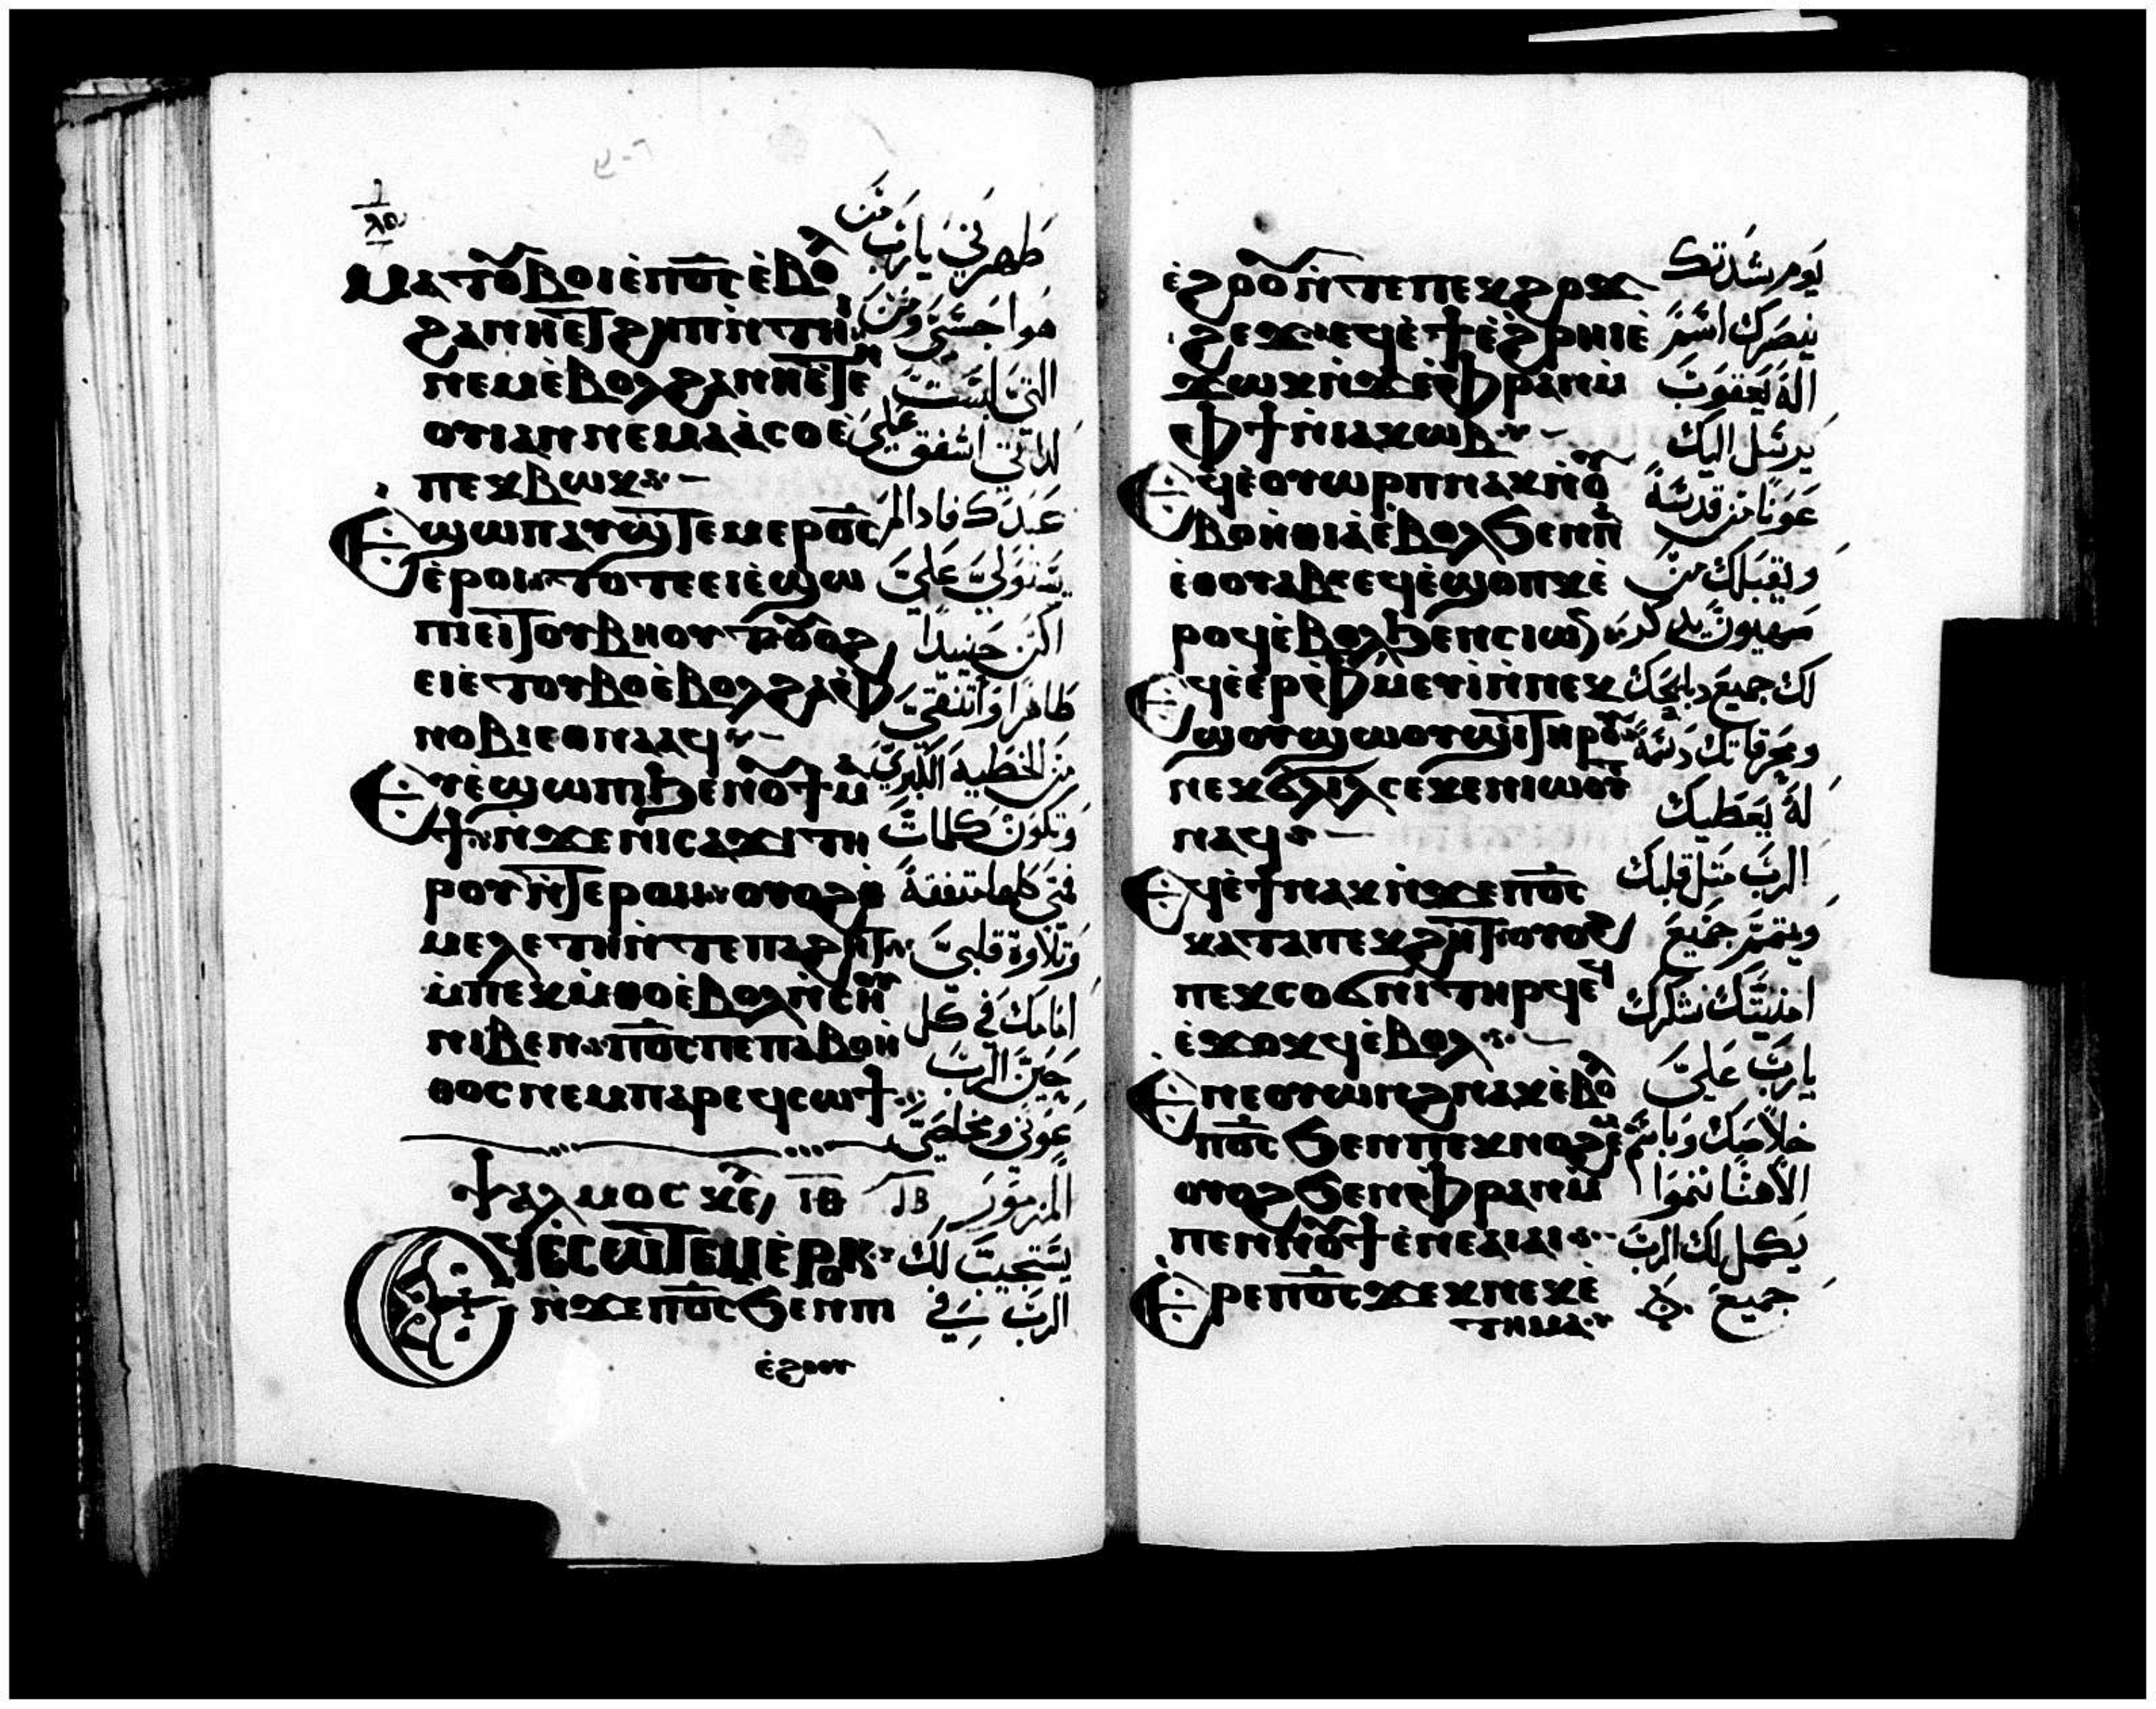 ⲙⲁⲧⲟⲩⲃⲟⲓ ⲉ̀ⲡⲟ̅ⲥ̅ ⲉ̀ⲃⲟⲗ
ϩⲁⲛⲏⲉⲧϩⲏⲡ ⲛ̀ⲧⲏⲓ
ⲛⲉⲙ ⲉ̀ⲃⲟⲗϩⲁ ⲛⲏⲉ̀ⲧⲉ
ⲛⲟⲩⲓ ⲁⲛ ⲛⲉ ⲙⲁⲁ̀ⲥⲟ ⲉ̀
ⲡⲉⲕⲃⲱⲕ
Ⲉϣⲱⲡ ⲁⲩϣⲧⲉⲙⲉⲣⲟ̅ⲥ̅
ⲉ̀ⲣⲟⲓ ⲧⲟⲧⲉ ⲉⲓⲉ̀ϣⲱ
ⲡⲓ ⲉⲓⲧⲟⲩⲃⲏⲟⲩⲧ ⲟⲩⲟϩ
ⲉⲓⲉ̀ⲧⲟⲩⲃⲟ ⲉ̀ⲃⲟⲗϩⲁ ⲫ
ⲛⲟⲃⲓ ⲉⲑⲛⲁⲁϥ
Ⲉⲩⲉ̀ϣⲱⲡⲓ ϧⲉⲛ ⲟⲩϯⲙ
ϯ ⲛ̀ϫⲉ ⲛⲓⲥⲁϫⲓ ⲧⲏ
ⲣⲟⲩ ⲛ̀ⲧⲉ ⲣⲱⲓ ⲟⲩⲟϩ ⲑ
ⲙⲉⲗⲉⲧⲏ ⲛ̀ⲧⲉ ⲡⲁϩⲏⲧ
ⲙ̀ⲡⲉⲕⲙ̀ⲑⲟ ⲉ̀ⲃⲟⲗ ⲛ̀ⲥⲏⲟⲩ
ⲛⲓⲃⲉⲛ ⲡⲟ̅ⲥ̅ ⲡⲉ ⲡⲁⲃⲟⲏ̀
ⲑⲟⲥ ⲛⲉⲙ ⲡⲁⲣⲉϥⲥⲱϯ
ⲯⲁⲗⲙⲟⲥ ⲓ̅ⲑ̅
Ⲉϥⲉ̀ⲥⲱⲧⲉⲙ ⲉ̀ⲣⲟⲕ
ⲛ̀ϫⲉ ⲡⲟ̅ⲥ̅ ϧⲉⲛ ⲡⲓ
ⲉ̀ϩⲟⲟⲩ
طهرني يارب من
ومن
التي ليست
لي اشفق علي
عبدك فاذا لم
يستولي علي
اكن حينيدا
طاهرا واتنقي
من الخطيه الكبري
وتكون كلمات
فمي كلها متفقة
وتلاوة قلبي
امامك في كل
حين الرب
عوني ومخلصي
المزمور
يستجيب لك
الرب في
ⲉ̀ϩⲟⲟⲩ ⲛ̀ⲧⲉ ⲡⲉⲕϩⲟϫ
ϩⲉϫ ⲉϥⲉ̀ϯ ⲉ̀ϩⲣⲏⲓ ⲉ̀
ϫⲱⲕ ⲛ̀ϫⲉ ⲫⲣⲁⲛ ⲙ̀
ⲫϯ ⲛ̀ⲓⲁⲕⲱⲃ
Ⲉϥⲉ̀ⲟⲩⲱⲣⲡ ⲛⲁⲕ ⲛ̀ⲟⲩ
ⲃⲟⲏ̀ⲑⲓⲁ ⲉ̀ⲃⲟⲗ ϧⲉⲛ ⲡⲏ
ⲉ̀ⲑⲟⲩⲁⲃ ⲉϥⲉ̀ϣⲟⲡⲕ ⲉ̀
ⲣⲟϥ ⲉ̀ⲃⲟⲗ ϧⲉⲛ ⲥⲓⲱⲛ
Ⲉϥⲉ̀ⲉⲣⲫⲙⲉⲩⲓ̀ ⲛ̀ⲛⲉⲕ
ϣⲟⲩϣⲱⲟⲩϣⲓ ⲧⲏⲣⲟⲩ
ⲛⲉⲕϭⲗⲓⲗ ⲥⲉⲕⲉⲛⲓⲱⲟⲩ
ⲛⲁϥ
Ⲉϥⲉ̀ϯ ⲛⲁⲕ ⲛ̀ϫⲉ ⲡⲟ̅ⲥ̅
ⲕⲁⲧⲁ ⲡⲉⲕϩⲏⲧ ⲟⲩⲟϩ
ⲡⲉⲕⲥⲟϭⲛⲓ ⲧⲏⲣϥ ⲉϥ
ⲉ̀ϫⲟⲕϥ ⲉ̀ⲃⲟⲗ
Ⲉⲛⲉⲟⲩⲱⲛϩ ⲛⲁⲕ ⲉ̀ⲃⲟⲗ
ⲡⲟ̅ⲥ̅ ϧⲉⲛ ⲡⲉⲕⲛⲟϩⲉⲙ
ⲟⲩⲟϩ ϧⲉⲛ ⲫⲣⲁⲛ ⲙ̀
ⲡⲉⲛⲛⲟⲩϯ ⲉⲛⲉⲁⲓⲁⲓ
Ⲉⲣⲉ ⲡⲟ̅ⲥ̅ ϫⲉⲕ ⲛⲉⲕⲉ̀
ⲧⲏⲙⲁ
يوم شدتك
ينصرك اسم
اله يعقوب
يرسل اليك
عونا من قدسه
ويقبلك من
صهيون يذكر
لك جميع دبايحك
ومحرقاتك دسمة
له يعطيك
الرب مثل قلبك
ويتمم جميع
امنيتك نشكرك
يارب علي
خلاصك وباسم
الاهنا ننموا
يكمل لك الرب
جميع